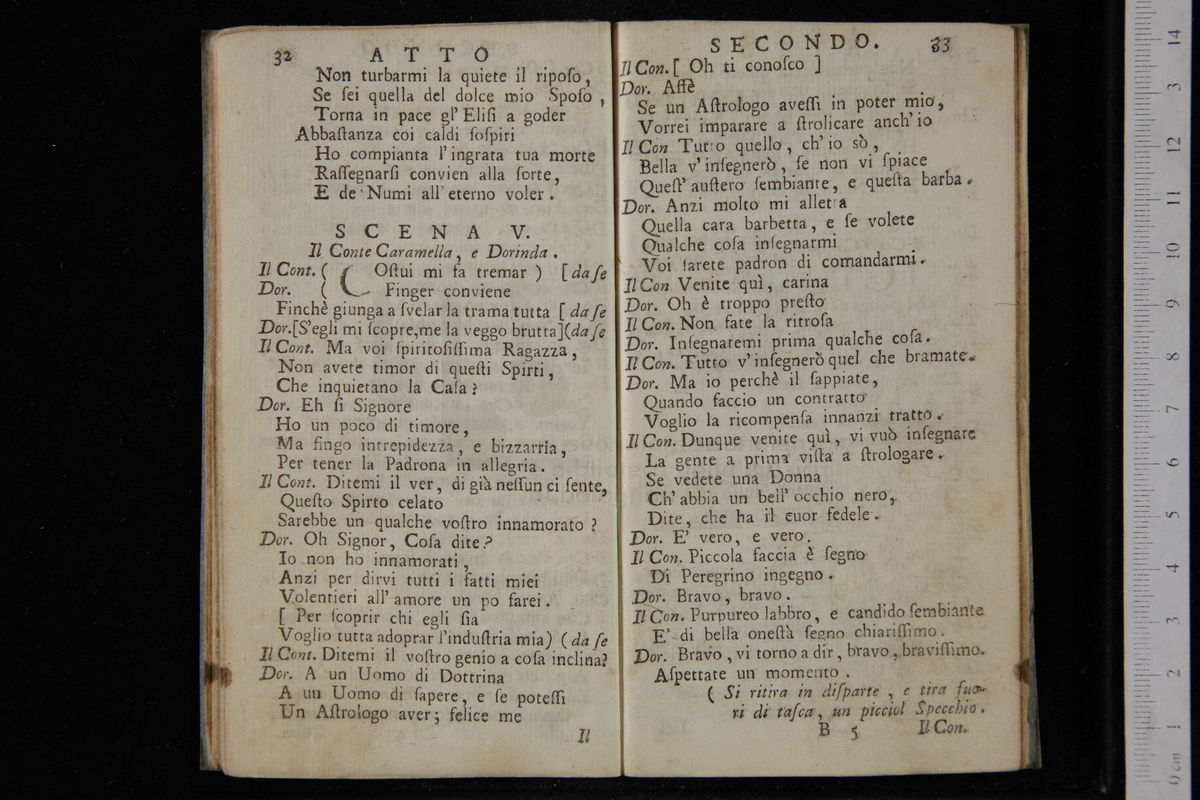 32 ATTO
Non turbarmi la quiete il ripoſo,
Se ſei quella del dolce mio Spoſo,
Torna in pace gl' Eliſi a goder
Abbaſtanza coi caldi ſoſpiri
Ho compianta l'ingrata tua morte
Raſſegnarſi convien alla ſorte,
E de' Numi all' eterno voler.
SCENA V.
Il Conte Caramella, e Dorinda.
Il Cont. ( Coſtui mi fa tremar ) [ da ſe
Dor. ( Finger conviene
Finchè giunga a ſvelar la trama tutta [ da ſe
Dor. [S'egli mi ſcopre, me la veggo brutta] (da ſe
Il Cont. Ma voi ſpiritoſiſſima Ragazza,
Non avete timor di queſti Spirti,
Che inquietano la Caſa?
Dor. Eh ſi Signore
Ho un poco di timore,
Ma fingo intrepidezza, e bizzarria,
Per tener la Padrona in allegria.
Il Cont. Ditemi il ver, di già neſſun ci ſente,
Queſto Spirto celato
Sarebbe un qualche voſtro innamorato?
Dor. Oh Signor, Coſa dite?
Io non ho innamorati,
Anzi per dirvi tutti i fatti miei
Volentieri all' amore un po farei.
[ Per ſcoprir chi egli ſia
Voglio tutta adoprar l'induſtria mia) ( da ſe
Il Cont. Ditemi il voſtro genio a coſa inclina?
Dor. A un Uomo di Dottrina
A un Uomo di ſapere, e ſe poteſſi
Un Aſtrologo aver; felice me
Il
SECONDO. 33
Il Con. [ Oh ti conoſco ]
Dor. Affè
Se un Aſtrologo aveſſi in poter mio,
Vorrei imparare a ſtrolicare anch' io
Il Con Tutto quello, ch' io sò,
Bella v' inſegnerò, ſe non vi ſpiace
Queſt' auſtero ſembiante, e queſta barba.
Dor. Anzi molto mi alletta
Quella cara barbetta, e ſe volete
Qualche coſa inſegnarmi
Voi ſarete padron di comandarmi.
Il Con Venite quì, carina
Dor. Oh è troppo preſto
Il Con. Non fate la ritroſa
Dor. Inſegnatemi prima qualche coſa.
Il Con. Tutto v' inſegnerò quel che bramate.
Dor. Ma io perchè il ſappiate,
Quando faccio un contratto
Voglio la ricompenſa innanzi tratto.
Il Con. Dunque venite quì, vi vuò inſegnare
La gente a prima viſta a ſtrologare.
Se vedete una Donna
Ch' abbia un bell' occhio nero,
Dite, che ha il cuor fedele.
Dor. E' vero, e vero.
Il Con. Piccola faccia è ſegno
Di Peregrino ingegno.
Dor. Bravo, bravo.
Il Con. Purpureo labbro, e candido ſembiante
E' di bella oneſtà ſegno chiariſſimo.
Dor. Bravo, vi torno a dir, bravo, braviſſimo.
Aſpettate un momento.
( Si ritira in diſparte, e tira fuo-
ri di taſca, un picciol Specchio.
B 5 Il Con.
0 cm 1 2 3 4 5 6 7 8 9 10 11 12 13 14